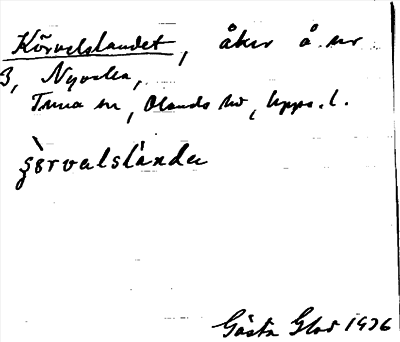 Körvelslandet, åker å nr
3, Nyvalla,
Tuna sn, Olands hd, Upps. l.
Gösta Glad 1936